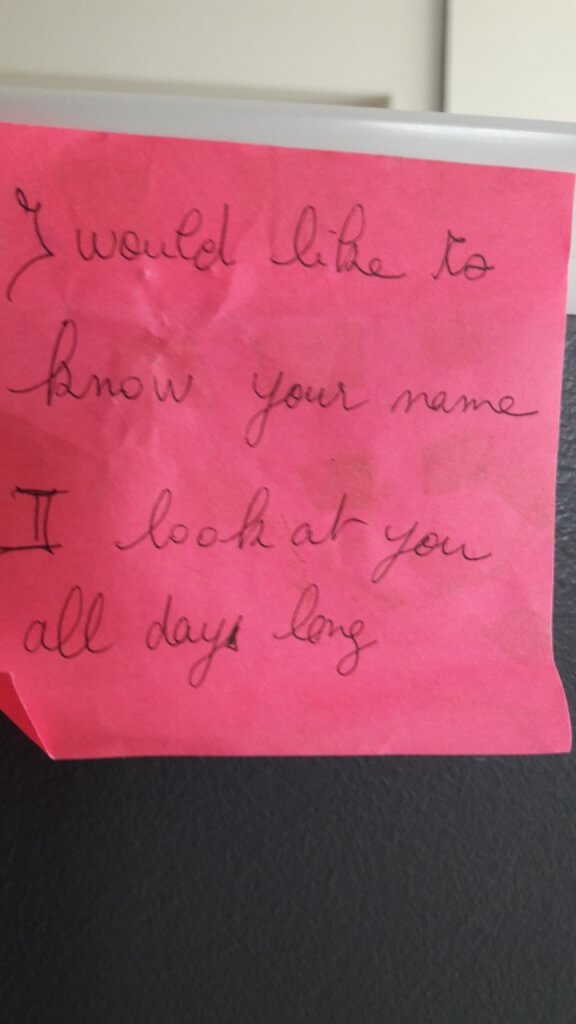 I would like to
know your name
I look at you
all day long